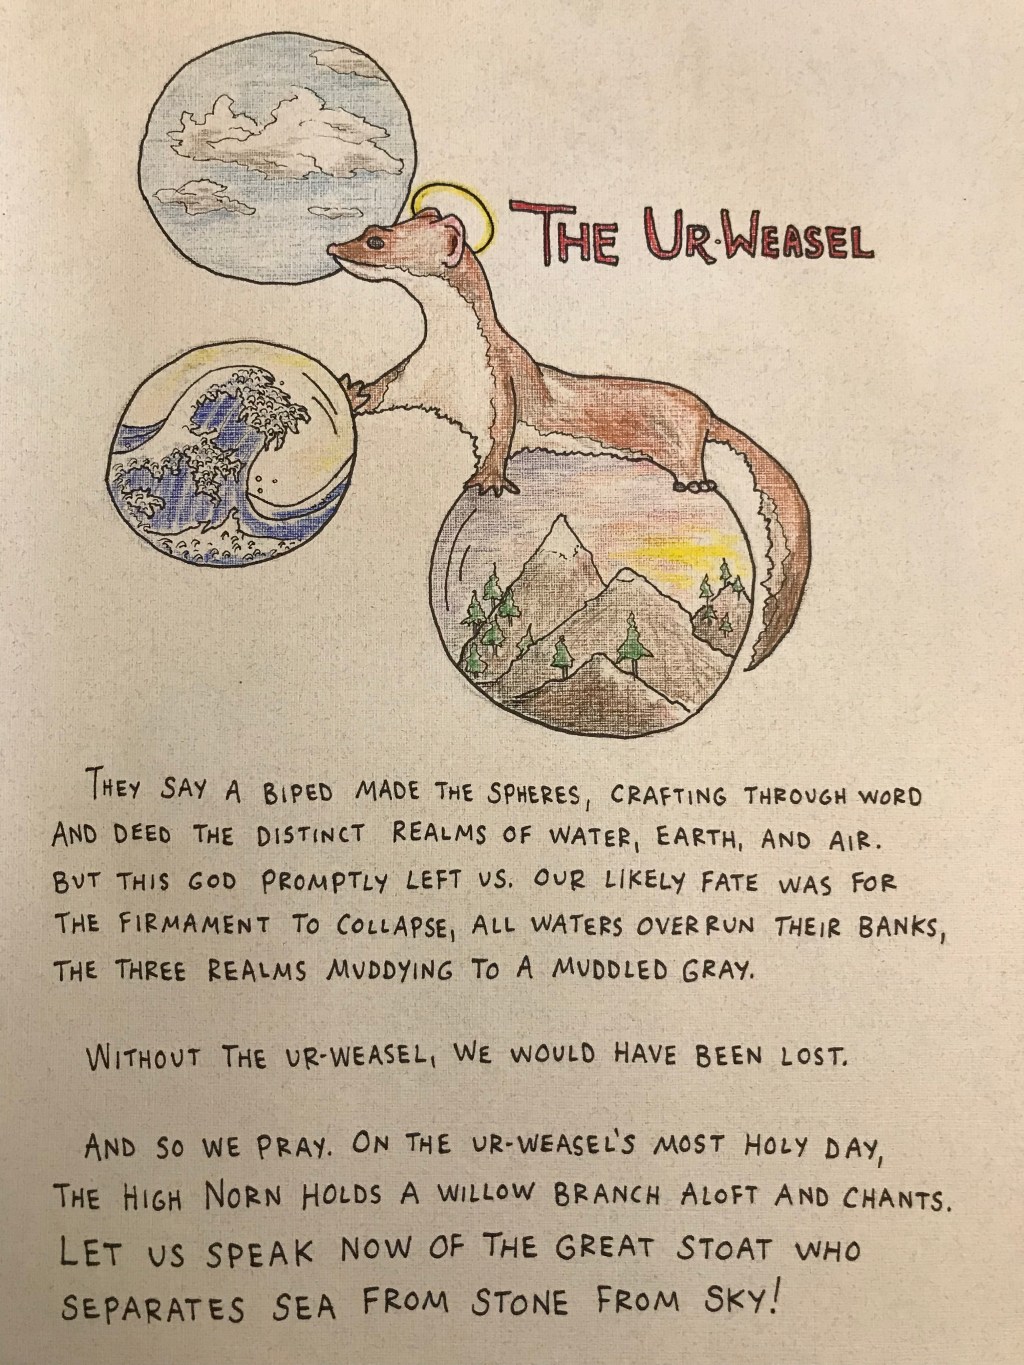 THE UR-WEASEL
THEY SAY A BIPED MADE THE SPHERES, CRAFTING THROUGH WORD
AND DEED THE DISTINCT REALMS OF WATER, EARTH, AND AIR.
BUT THIS GOD PROMPTLY LEFT US. OUR LIKELY FATE WAS FOR
THE FIRMAMENT TO COLLAPSE, ALL WATERS OVERRUN THEIR BANKS,
THE THREE REALMS MUDDYING TO A MUDDLED GRAY.
WITHOUT THE UR-WEASEL, WE WOULD HAVE BEEN LOST.
AND SO WE PRAY. ON THE UR-WEASEL'S MOST HOLY DAY,
THE HIGH NORN HOLDS A WILLOW BRANCH ALOFT AND CHANTS.
LET US SPEAK NOW OF THE GREAT STOAT WHO
SEPARATES SEA FROM STONE FROM SKY!